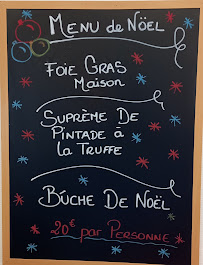 MENU de NÖEL
FOIE GRAS
Maison
SUPRÈME DE
PINTADE à
la TRUFFE
BÛCHE DE NOËL
20€ par PERSONNE